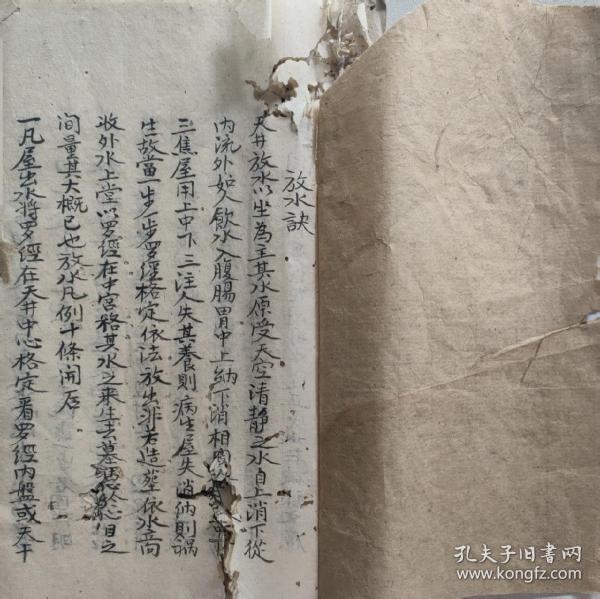 放水訣
天井放水以坐為主其水原受天空清靜之水自上消下從
内流外如人飲水入腹腸胃中上納下消相
三焦屋用上中下三注人失其養則病生屋失消納則禍
生故當一步一步罗經格定依法放出非若造塟依水高
收外水上堂以罗經在中宮格其水之來生去墓
洵量其大概已也放水凡例十條開后
一凡屋出水將罗經在天井中心格定看罗經内盤或天干
孔夫子旧書网
www.kongfz.com